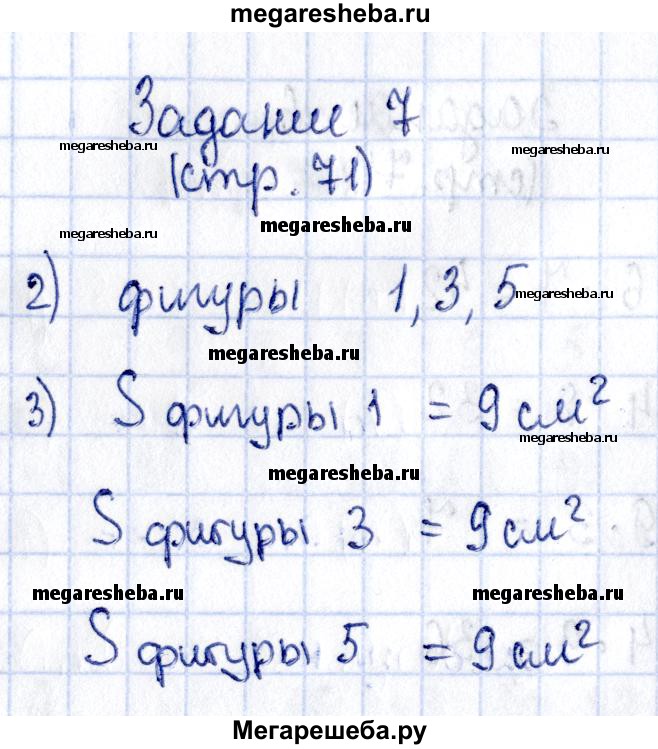 megaresheba.ru
Задание 7
megaresheba.ru
megaresheba.ru
(стр. 71)
megaresheba.ru
megaresheba.ru
2) фигуры 1, 3, 5
megaresheba.ru
megaresheba.ru
3) S фигуры 1 = 9 см²
megaresheba.ru
megaresheba.ru
S фигуры 3 = 9 см²
megaresheba.ru
megaresheba.ru
S фигуры 5 = 9 см²
Мегарешеба.ру